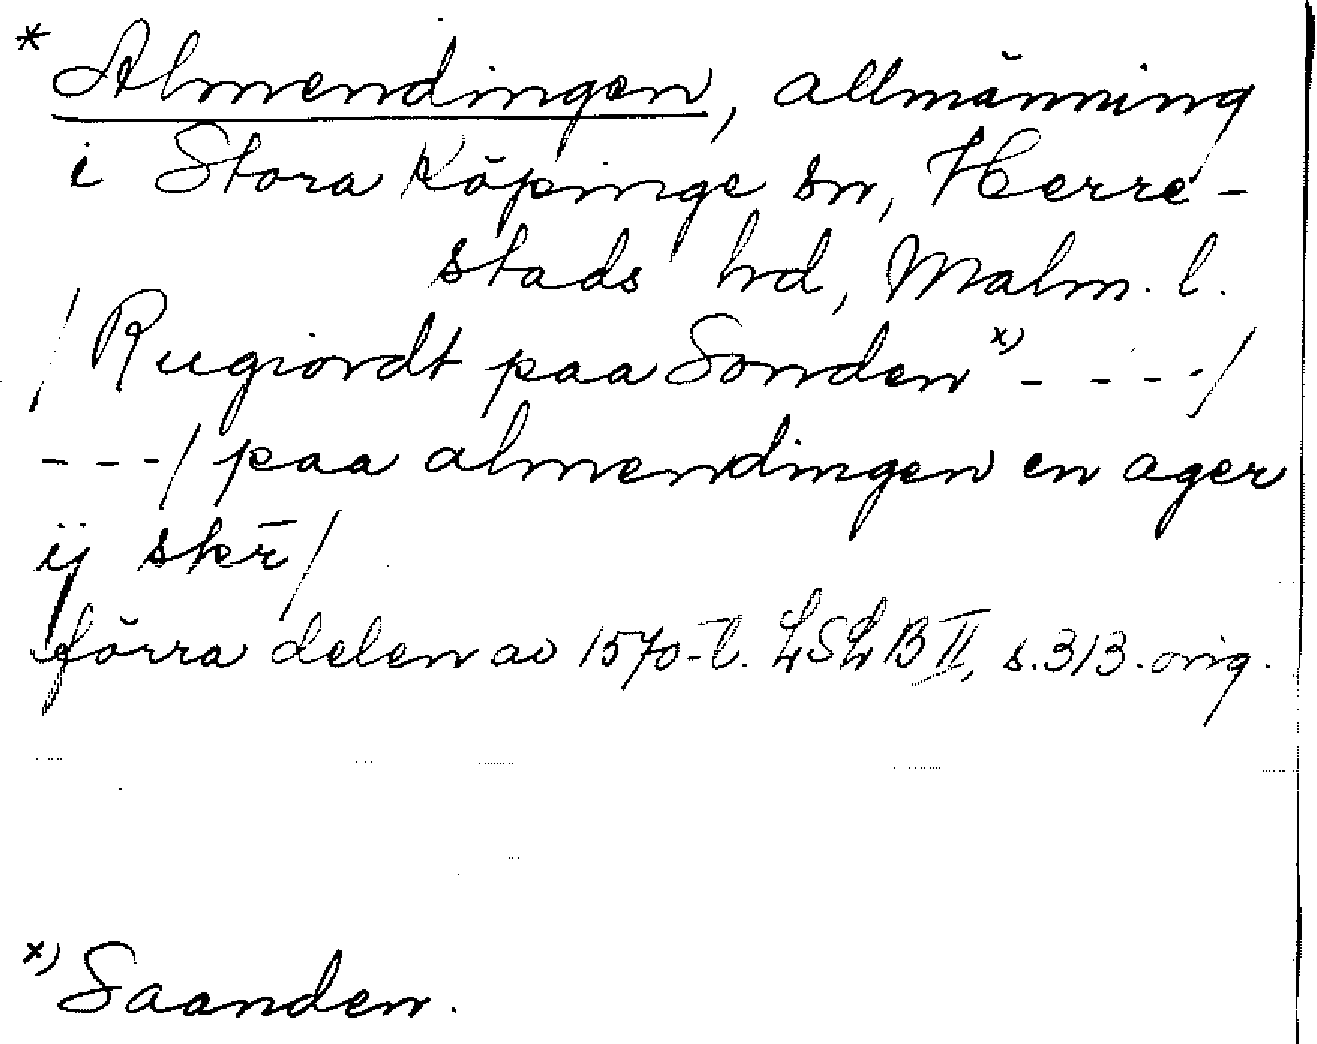 * Almendingen, allmänning
i Stora Köpinge sn, Herre-
stads hd, Malm. l.
/Rugiordt paa Sonden x) - - - -/
- - -/ paa almendingen en ager
ij skr̄/
förra delen av 1570-t. LSLB II, s. 313. orig.
x) Saanden.